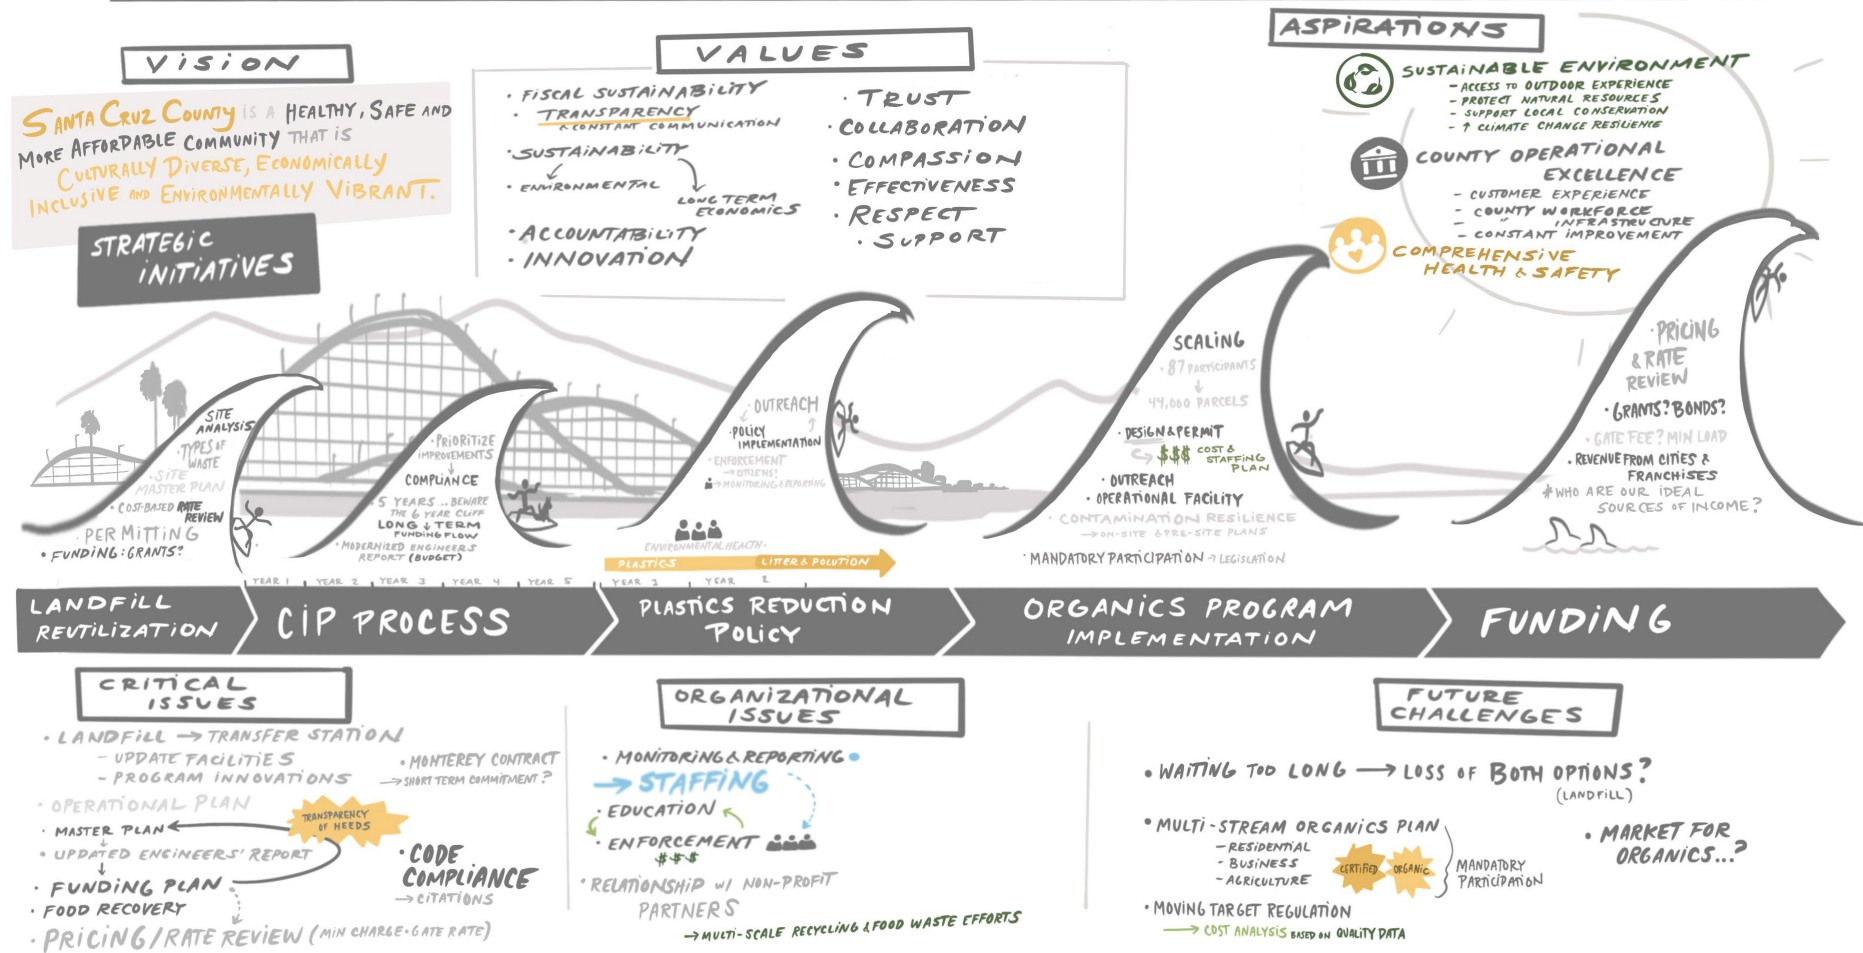 VISION
SANTA CRUZ COUNTY IS A HEALTHY, SAFE AND
MORE AFFORDABLE COMMUNITY THAT IS
CULTURALLY DIVERSE, ECONOMICALLY
INCLUSIVE AND ENVIRONMENTALLY VIBRANT.
STRATEGIC
INITIATIVES
VALUES
• FISCAL SUSTAINABILITY
• TRANSPARENCY
& CONSTANT COMMUNICATION
• SUSTAINABILITY
• ENVIRONMENTAL
LONG TERM
ECONOMICS
• ACCOUNTABILITY
• INNOVATION
• TRUST
• COLLABORATION
• COMPASSION
• EFFECTIVENESS
• RESPECT
• SUPPORT
ASPIRATIONS
SUSTAINABLE ENVIRONMENT
- ACCESS TO OUTDOOR EXPERIENCE
- PROTECT NATURAL RESOURCES
- SUPPORT LOCAL CONSERVATION
- ↑ CLIMATE CHANGE RESILIENCE
COUNTY OPERATIONAL
EXCELLENCE
- CUSTOMER EXPERIENCE
- COUNTY WORKFORCE
- " INFRASTRUCTURE
- CONSTANT IMPROVEMENT
COMPREHENSIVE
HEALTH & SAFETY
SITE
ANALYSIS
• TYPES OF
WASTE
• SITE
MASTER PLAN
• COST-BASED RATE
REVIEW
• PERMITTING
• FUNDING: GRANTS?
• PRIORITIZE
IMPROVEMENTS
↓
COMPLIANCE
• 5 YEARS... BEWARE
THE 6 YEAR CLIFF
LONG ↓ TERM
FUNDING FLOW
• MODERNIZED ENGINEERS
REPORT (BUDGET)
• OUTREACH
• POLICY
IMPLEMENTATION
• ENFORCEMENT
→ CITIZENS!
→ MONITORING & REPORTING
ENVIRONMENTAL HEALTH
PLASTICS
LITTER & POLUTION
SCALING
• 87 PARTICIPANTS
↓
44,000 PARCELS
• DESIGN & PERMIT
$$$ COST &
STAFFING
PLAN
• OUTREACH
• OPERATIONAL FACILITY
• CONTAMINATION RESILIENCE
→ ON-SITE & PRE-SITE PLANS
• MANDATORY PARTICIPATION → LEGISLATION
• PRICING
& RATE
REVIEW
• GRANTS? BONDS?
• GATE FEE? MIN LOAD
• REVENUE FROM CITIES &
FRANCHISES
# WHO ARE OUR IDEAL
SOURCES OF INCOME?
YEAR 1
YEAR 2
YEAR 3
YEAR 4
YEAR 5
YEAR 1
YEAR 2
LANDFILL
REUTILIZATION
CIP PROCESS
PLASTICS REDUCTION
POLICY
ORGANICS PROGRAM
IMPLEMENTATION
FUNDING
CRITICAL
ISSUES
• LANDFILL → TRANSFER STATION
- UPDATE FACILITIES
- PROGRAM INNOVATIONS
• MONTEREY CONTRACT
→ SHORT TERM COMMITMENT?
• OPERATIONAL PLAN
• MASTER PLAN
TRANSPARENCY
OF NEEDS
• UPDATED ENGINEERS' REPORT
• FUNDING PLAN
• FOOD RECOVERY
• PRICING/RATE REVIEW (MIN CHARGE • GATE RATE)
• CODE
COMPLIANCE
→ CITATIONS
ORGANIZATIONAL
ISSUES
• MONITORING & REPORTING
→ STAFFING
• EDUCATION
• ENFORCEMENT
$$$
• RELATIONSHIP W/ NON-PROFIT
PARTNERS
→ MULTI-SCALE RECYCLING & FOOD WASTE EFFORTS
FUTURE
CHALLENGES
• WAITING TOO LONG → LOSS OF BOTH OPTIONS?
(LANDFILL)
• MULTI-STREAM ORGANICS PLAN
- RESIDENTIAL
- BUSINESS
- AGRICULTURE
CERTIFIED ORGANIC
MANDATORY
PARTICIPATION
• MARKET FOR
ORGANICS...?
• MOVING TARGET REGULATION
→ COST ANALYSIS BASED ON QUALITY DATA